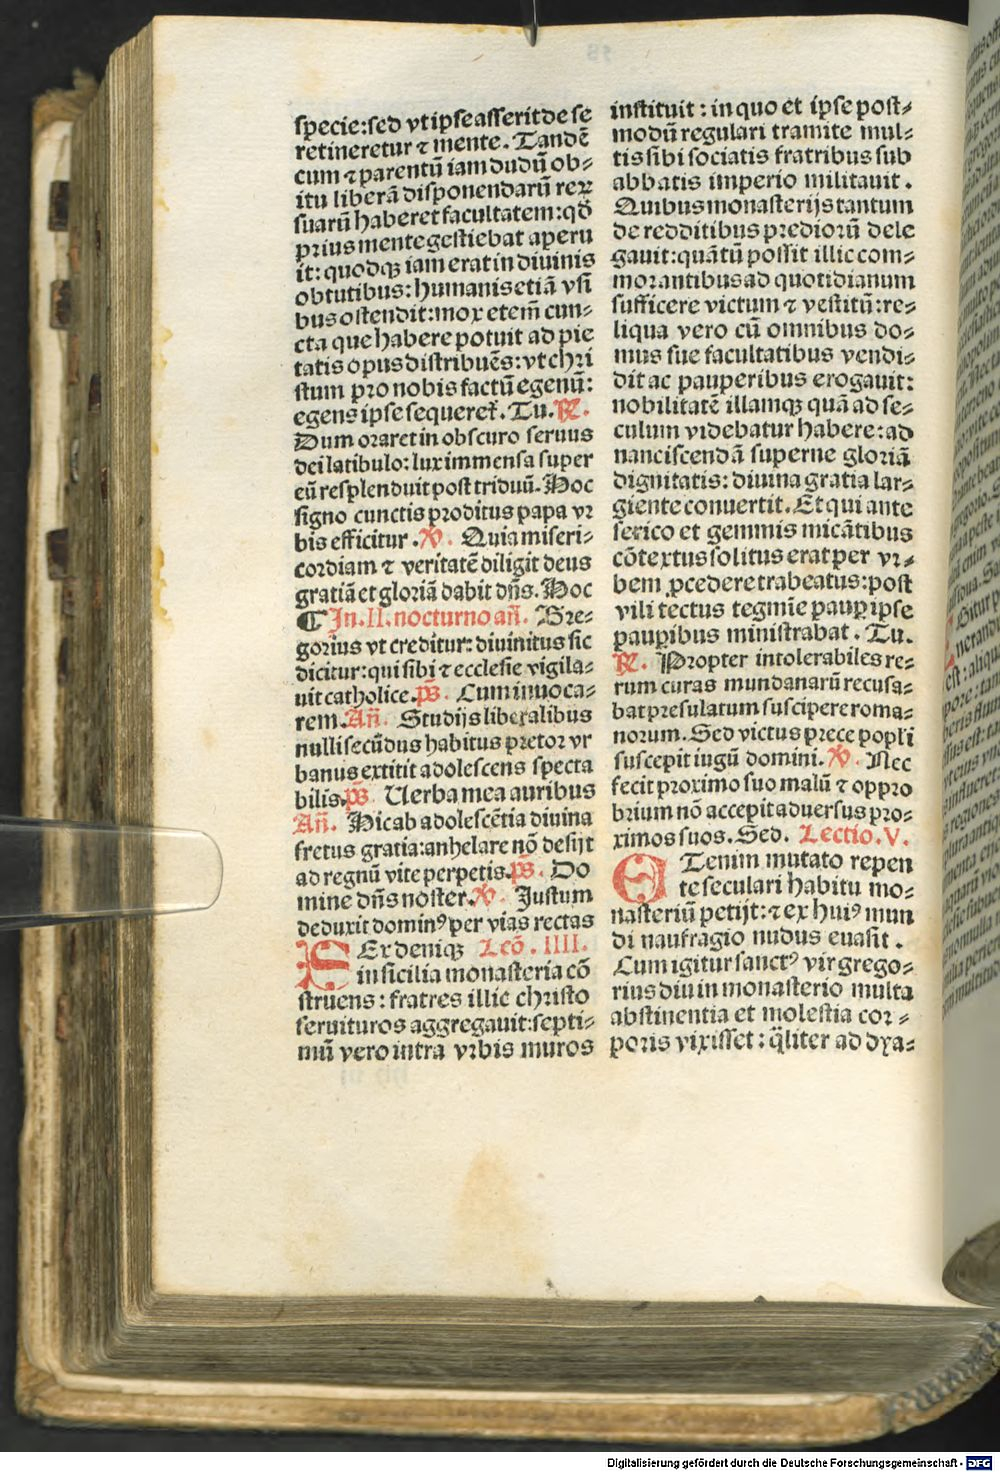 specie:sed vt ipse asserit de se
retineretur ⁊ mente. Tandē
cum ⁊ parentū iam dudū ob⸗
itu liberā disponendarū reꝝ
suarū haberet facultatem:qđ
prius mente gestiebat aperu
it: quodqꝫ iam erat in diuinis
obtutibus: humanis etiā vsi
bus ostendit:mox etem̄ cun⸗
cta que habere potuit ad pie
tatis opus distribuēs:vt chri
stum pro nobis factū egenū:
egens ipse sequeret᷑. Tu. ℟.
Dum oraret in obscuro seruus
dei latibulo: lux immensa super
eū resplenduit post triduū. Hoc
signo cunctis proditus papa vr
bis efficitur. ℣. Quia miseri⸗
cordiam ⁊ veritatē diligit deus
gratiā et gloriā dabit dn̄s. Hoc
¶ In. II. nocturno an̄. Gre⸗
gorius vt creditur: diuinitus sic
dicitur: qui sibi ⁊ ecclesie vigila⸗
uit catholice. p̄s. Cum inuoca⸗
rem. An̄. Studijs liberalibus
nulli secūdus habitus pretor vr
banus extitit adolescens specta
bilis. p̄s. Uerba mea auribus
An̄. Hic ab adolescētia diuina
fretus gratia:anhelare nō desijt
ad regnū vite perpetis. p̄s. Do
mine dn̄s noster. ℣. Justum
deduxit dominꝰ per vias rectas
SEd deniqꝫ Leō. IIII.
in sicilia monasteria cō
struens: fratres illic christo
seruituros aggregauit:septi⸗
mū vero intra vrbis muros
instituit: in quo et ipse post⸗
modū regulari tramite mul⸗
tis sibi sociatis fratribus sub
abbatis imperio militauit.
Quibus monasterijs tantum
de redditibus prediorū dele
gauit:quātū possit illic com⸗
morantibus ad quotidianum
sufficere victum ⁊ vestitū:re⸗
liqua vero cū omnibus do⸗
mus sue facultatibus vendi⸗
dit ac pauperibus erogauit:
nobilitatē illamqꝫ quā ad se⸗
culum videbatur habere: ad
nanciscendā superne gloriā
dignitatis: diuina gratia lar⸗
giente conuertit. Et qui ante
serico et gemmis micātibus
cōtextus solitus erat per vr⸗
bem ꝓcedere trabeatus:post
vili tectus tegmīe pauꝑ ipse
pauꝑibus ministrabat. Tu.
℟. Propter intolerabiles re⸗
rum curas mundanarū recusa⸗
bat presulatum suscipere roma⸗
norum. Sed victus prece popl̄i
suscepit iugū domini. ℣. Nec
fecit proximo suo malū ⁊ oppro
brium nō accepit aduersus pro⸗
ximos suos. Sed. Lectio. V.
ETenim mutato repen
te seculari habitu mo⸗
nasteriū petijt: ⁊ ex huiꝰ mun
di naufragio nudus euasit.
Cum igitur sanctꝰ vir grego⸗
rius diu in monasterio multa
abstinentia et molestia cor⸗
poris vixisset: q̄liter ad dya⸗
Digitalisierung gefördert durch die Deutsche Forschungsgemeinschaft - DFG